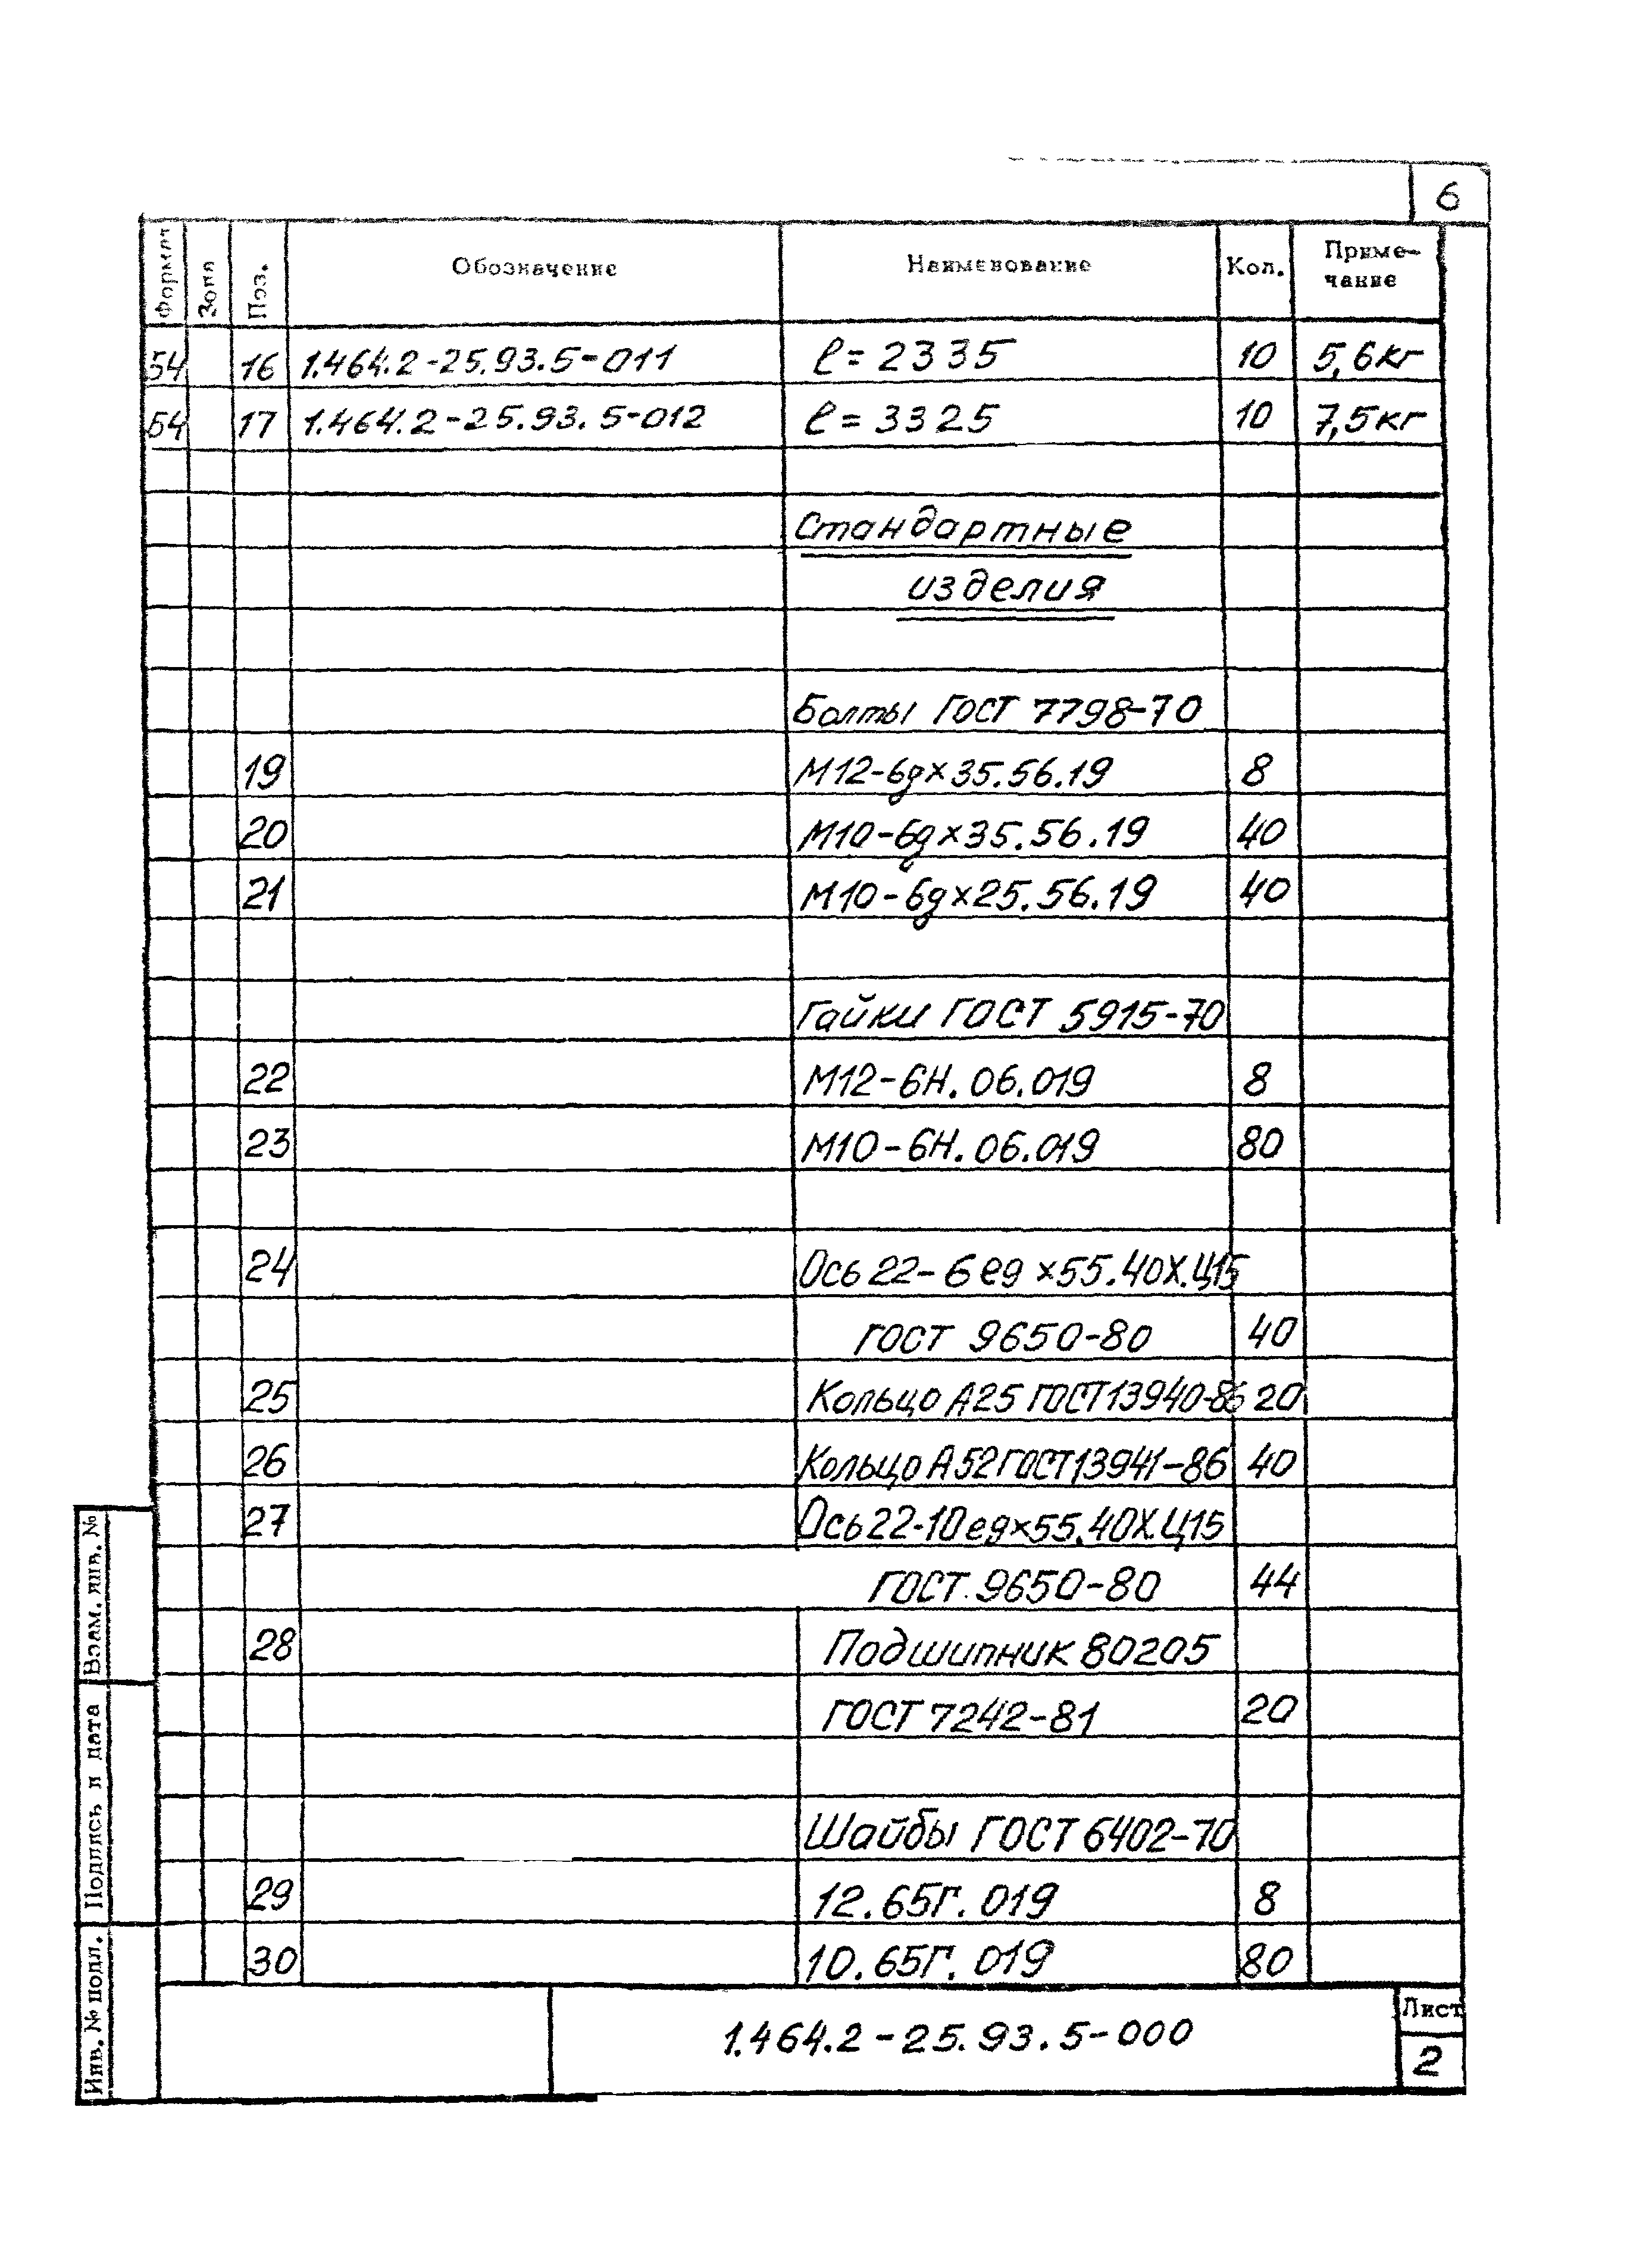 6
Формат Зона Поз. Обозначение Наименование Кол. Приме-
чание
54 16 1.464.2-25.93.5-011 ℓ=2335 10 5,6кг
54 17 1.464.2-25.93.5-012 ℓ=3325 10 7,5кг
Стандартные
изделия
Болты ГОСТ 7798-70
19 М12-6g×35.56.19 8
20 М10-6g×35.56.19 40
21 М10-6g×25.56.19 40
Гайки ГОСТ 5915-70
22 М12-6Н.06.019 8
23 М10-6Н.06.019 80
24 Ось 22-6eg×55.40Х.Ц15
ГОСТ 9650-80 40
25 Кольцо А25 ГОСТ 13940-86 20
26 Кольцо А52 ГОСТ 13941-86 40
27 Ось 22-10eg×55.40Х.Ц15
ГОСТ 9650-80 44
28 Подшипник 80205
ГОСТ 7242-81 20
Шайбы ГОСТ 6402-70
29 12.65Г.019 8
30 10.65Г.019 80
Взам. инв. №
Подпись и дата
Инв. № подл.
1.464.2-25.93.5-000
Лист
2